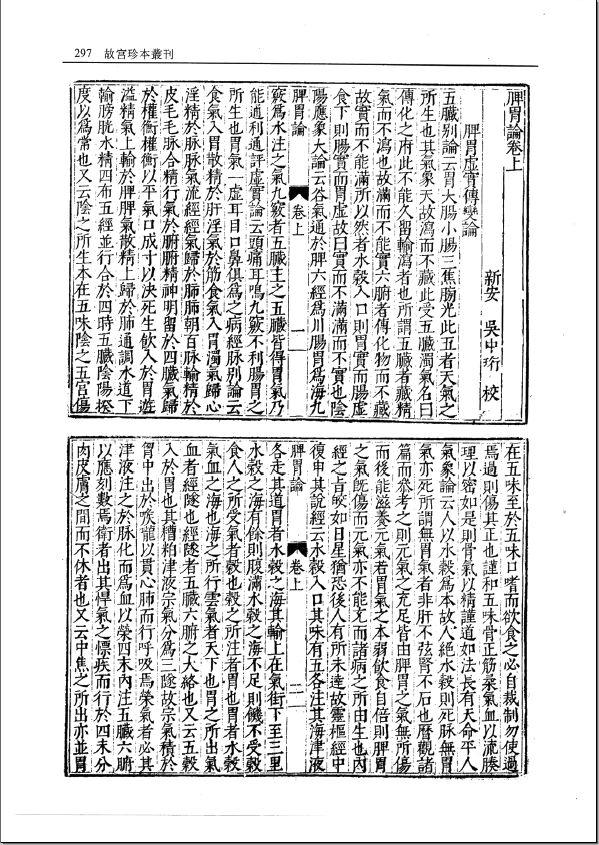 297 故宮珍本叢刊
脾胃論卷上
新安 吳中珩 校
脾胃虛實傳變論
五臟別論云胃大腸小腸三焦膀光此五者天氣之
所生也其氣象天故瀉而不藏此受五臟濁氣名曰
傳化之府此不能久留輸瀉者也所謂五臟者藏精
氣而不瀉也故滿而不能實六腑者傳化物而不藏
故實而不能滿所以然者水穀入口則胃實而腸虛
食下則腸實而胃虛故曰實而不滿滿而不實也陰
陽應象大論云谷氣通於脾六經為川腸胃為海九
脾胃論 卷上 一
竅為水注之氣九竅者五臟主之五臟皆得胃氣乃
能通利通評虛實論云頭痛耳鳴九竅不利腸胃之
所生也胃氣一虛耳目口鼻俱為之病經脉別論云
食氣入胃散精於肝淫氣於筋食氣入胃濁氣歸心
淫精於脉脉氣流經經氣歸於肺肺朝百脉輸精於
皮毛毛脉合精行氣於腑腑精神明留於四臟氣歸
於權衡權衡以平氣口成寸以決死生飲入於胃遊
溢精氣上輸於脾脾氣散精上歸於肺通調水道下
輸膀胱水精四布五經並行合於四時五臟陰陽揆
度以為常也又云陰之所生本在五味陰之五宮傷
在五味至於五味口嗜而欲食之必自裁制勿使過
焉過則傷其正也謹和五味骨正筋柔氣血以流腠
理以密如是則骨氣以精謹道如法長有天命平人
氣象論云人以水穀為本故人絕水穀則死脉無胃
氣亦死所謂無胃氣者非肝不弦腎不石也曆觀諸
篇而參考之則元氣之充足皆由脾胃之氣無所傷
而後能滋養元氣若胃氣之本弱飲食自倍則脾胃
之氣既傷而元氣亦不能充而諸病之所由生也內
經之㫖皎如日星猶恐後人有所未達故靈樞經中
復申其說經云水穀入口其味有五各注其海津液
脾胃論 卷上 二
各走其道胃者水穀之海其輸上在氣街下至三里
水穀之海有餘則腹滿水穀之海不足則饑不受穀
食人之所受氣者穀也穀之所注者胃也胃者水穀
氣血之海也海之所行雲氣者天下也胃之所出氣
血者經隧也經隧者五臟六腑之大絡也又云五穀
入於胃也其糟粕津液宗氣分為三隧故宗氣積於
胷中出於喉嚨以貫心肺而行呼吸焉榮氣者必其
津液注之於脉化而為血以榮四末內注五臟六腑
以應刻數焉衛者出其悍氣之慓疾而行於四末分
肉皮膚之間而不休者也又云中焦之所出亦並胃